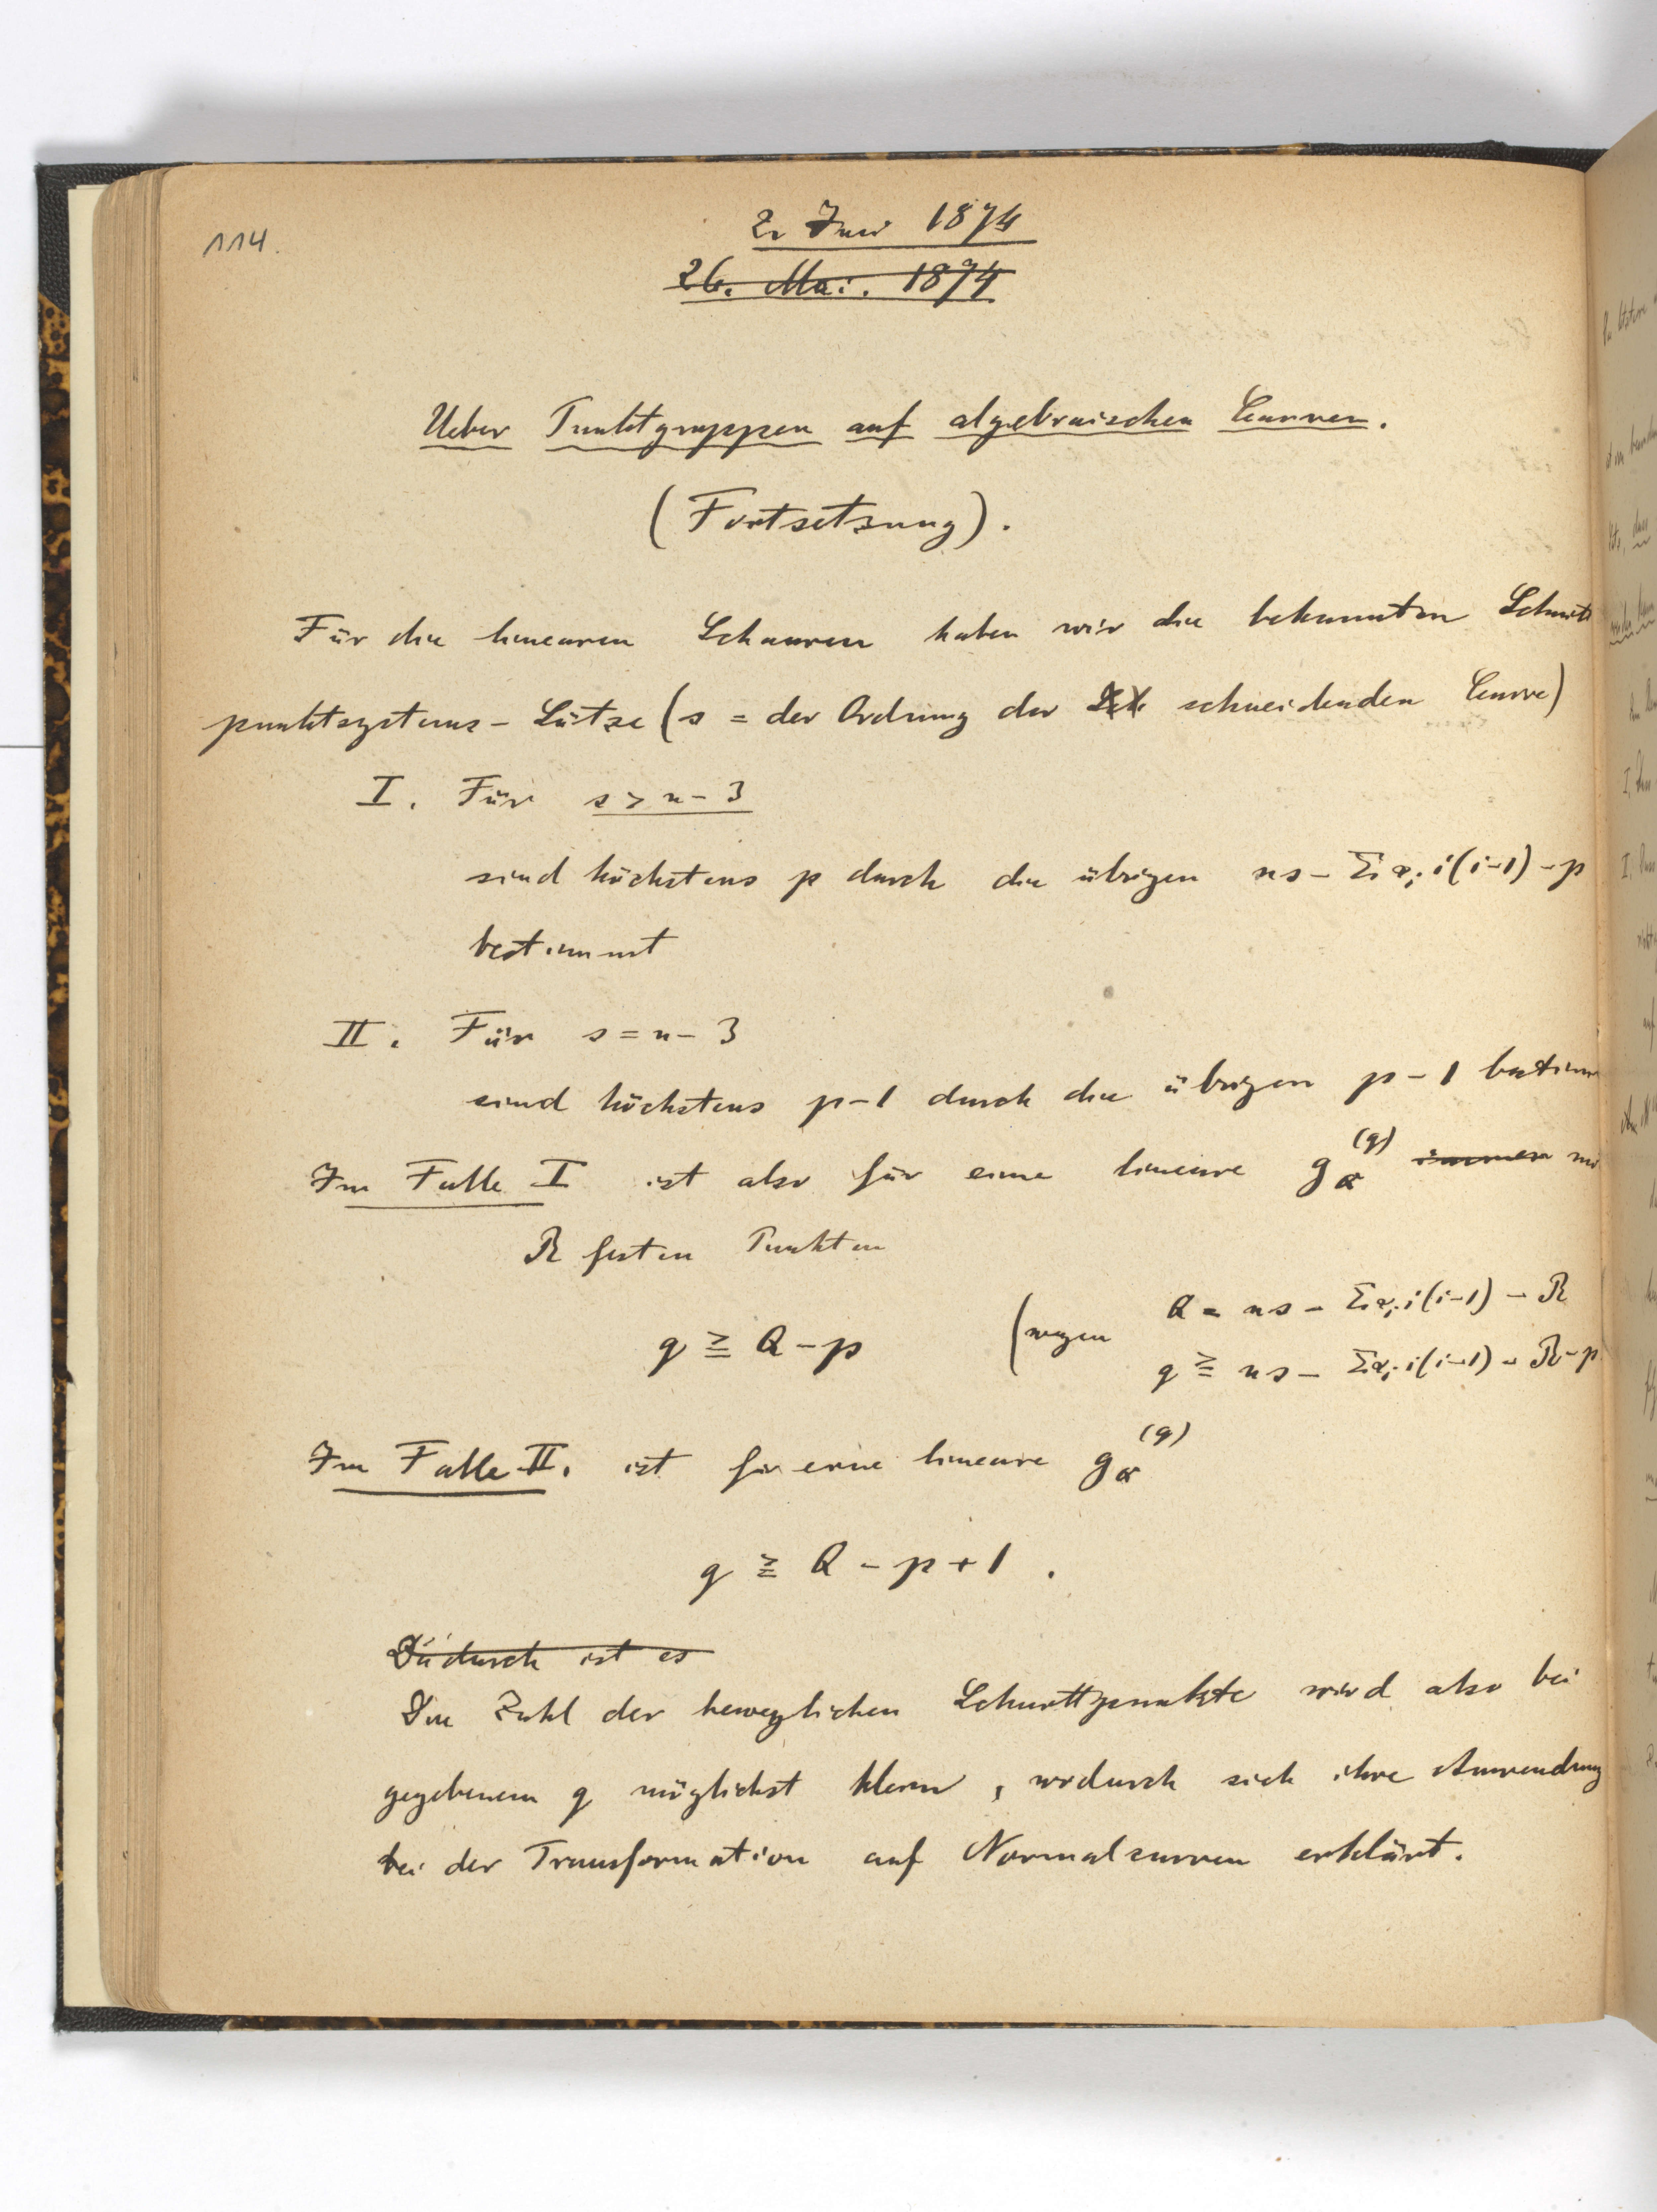 114.
2. Juni 1874
26. Mai. 1874
Ueber Punktgruppen auf algebraischen Curven.
(Fortsetzung).
Für die linearen Schaaren haben wir die bekannten Schnitt
punktsystems-Sätze (s = der Ordnung der schneidenden Curve)
I. Für s > n-3
sind höchstens p durch die übrigen ns - Σαᵢ i(i-1) - p
bestimmt
II. Für s = n-3
sind höchstens p-1 durch die übrigen p-1 bestim
Im Falle I ist also für eine lineare g_Q^(q) immer mi
R festen Punkten
q ≧ Q-p (wegen Q = ns - Σαᵢ i(i-1) - R
q ≧ ns - Σαᵢ i(i-1) - R - p
Im Falle II. ist für eine lineare g_Q^(q)
q ≧ Q-p+1.
Dadurch ist es
Die Zahl der beweglichen Schnittpunkte wird also bei
gegebenem q möglichst klein, wodurch sich ihre Anwendung
bei der Transformation auf Normalcurven erklärt.